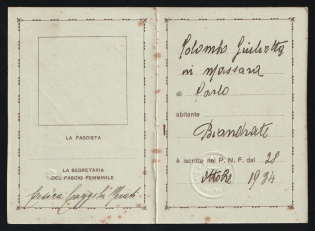 LA FASCISTA
LA SEGRETARIA
DEL FASCIO FEMMINILE
Colombo Giulietta
in Massara
di Carlo
abitante
Biandrate
è iscritta nel P. N. F. dal 28
ottobre 1934